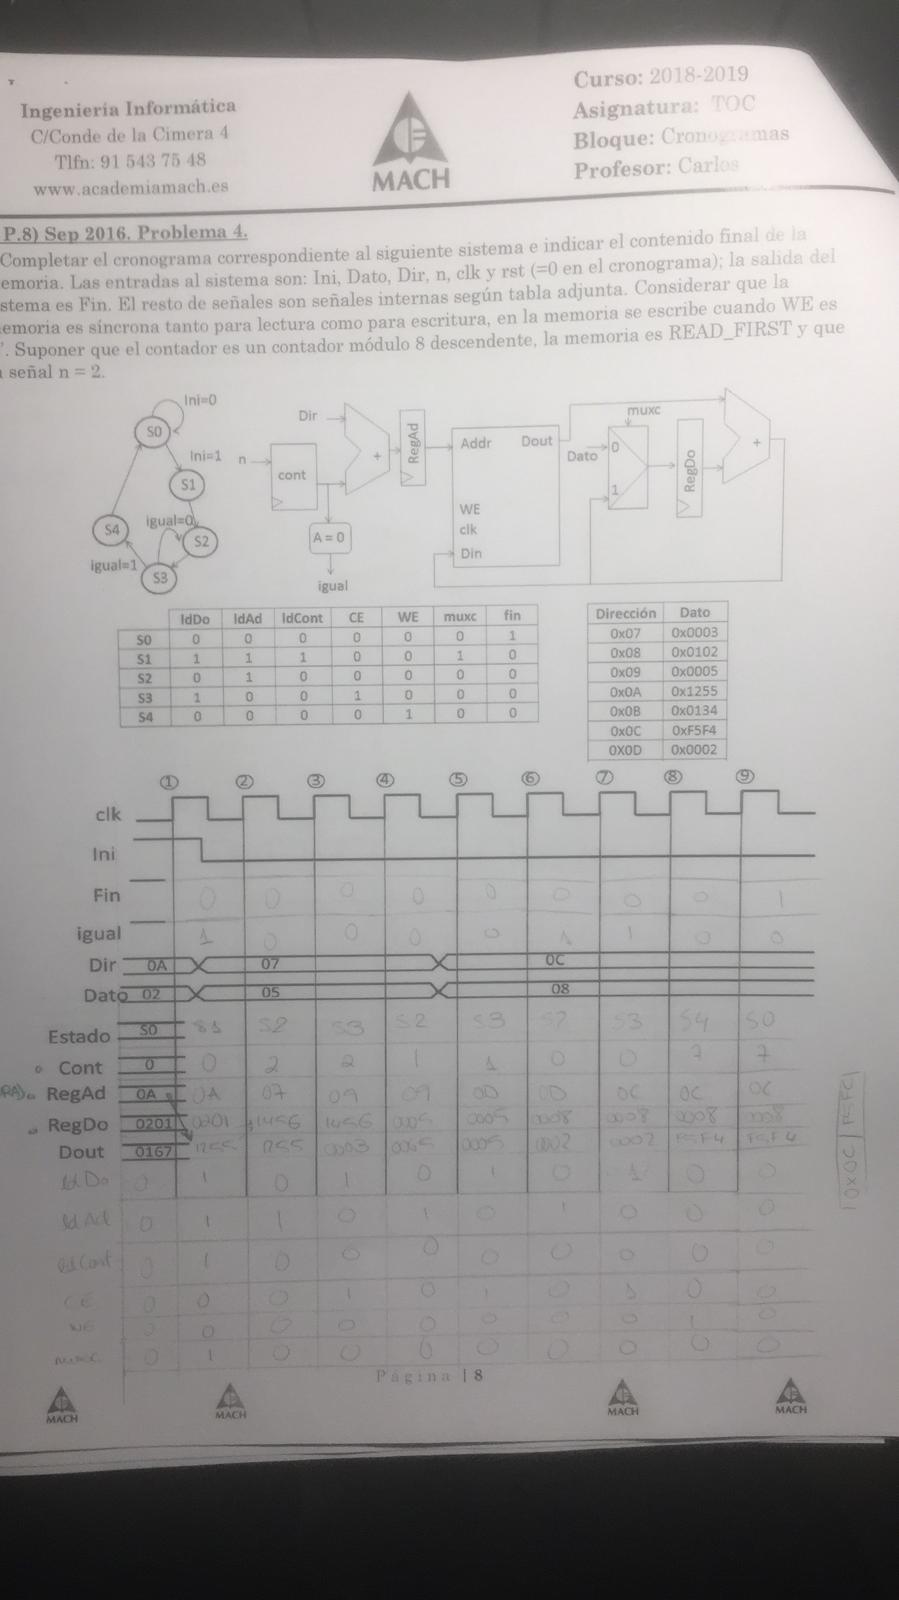 Ingeniería Informática
C/Conde de la Cimera 4
Tlfn: 91 543 75 48
www.academiamach.es
MACH
Curso: 2018-2019
Asignatura: TOC
Bloque: Cronogramas
Profesor: Carlos
P.8) Sep 2016. Problema 4.
Completar el cronograma correspondiente al siguiente sistema e indicar el contenido final de la
emoria. Las entradas al sistema son: Ini, Dato, Dir, n, clk y rst (=0 en el cronograma); la salida del
stema es Fin. El resto de señales son señales internas según tabla adjunta. Considerar que la
emoria es síncrona tanto para lectura como para escritura, en la memoria se escribe cuando WE es
'. Suponer que el contador es un contador módulo 8 descendente, la memoria es READ_FIRST y que
señal n = 2.
Ini=0
S0
Ini=1
S1
igual=0
S2
S4
igual=1
S3
Dir
n
cont
+
RegAd
A = 0
igual
Addr Dout
WE
clk
Din
muxc
Dato
0
1
RegDo
+
ldDo ldAd ldCont CE WE muxc fin
S0 0 0 0 0 0 0 1
S1 1 1 1 0 0 1 0
S2 0 1 0 0 0 0 0
S3 1 0 0 1 0 0 0
S4 0 0 0 0 1 0 0
Dirección Dato
0x07 0x0003
0x08 0x0102
0x09 0x0005
0x0A 0x1255
0x0B 0x0134
0x0C 0xF5F4
0X0D 0x0002
① ② ③ ④ ⑤ ⑥ ⑦ ⑧ ⑨
clk
Ini
Fin 0 0 0 0 0 0 0 0 1
igual 1 0 0 0 0 1 1 0 0
Dir 0A 07 0C
Dato 02 05 08
Estado S0 S1 S2 S3 S2 S3 S2 S3 S4 S0
Cont 0 0 2 2 1 1 0 0 7 7
RegAd 0A 0A 07 09 09 0D 0D 0C 0C 0C
RegDo 0201 0201 1456 1456 0005 0005 0008 0008 0008 0008
Dout 0167 1255 1255 0003 0005 0005 0002 0002 F5F4 F5F4
ldDo 0 1 0 1 0 1 0 1 0 0
ldAd 0 1 1 0 1 0 1 0 0 0
ldCont 0 1 0 0 0 0 0 0 0 0
CE 0 0 0 1 0 1 0 1 0 0
WE 0 0 0 0 0 0 0 1 0
muxc 0 1 0 0 0 0 0 0 0 0
Página | 8
MACH
MACH
MACH
MACH